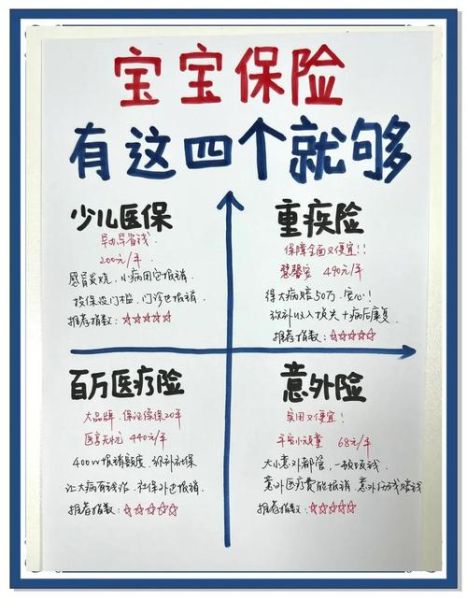 宝宝保险
有这四个就够
少儿医保
早办早省钱
200元/年
感冒发烧、小病用它报销
投保没门槛、门诊也报销
推荐指数:☆☆☆☆☆
重疾险
保障全面又便宜!!
慧馨安 490元/年
得大病赔50万,安心!
弥补收入损失+病后康复
推荐指数:☆☆☆☆☆
百万医疗险
大品牌、保证续保20年
医享无忧 440元/年
400W报销额度、弥补社保
让大病有钱治、社保外也报销
推荐指数:☆☆☆☆☆
意外险
实用又便宜!
平安小顽童 68元/年
大小意外都管,一般
意外医疗费能报销、意外伤残赔钱
推荐指数:☆☆☆☆☆